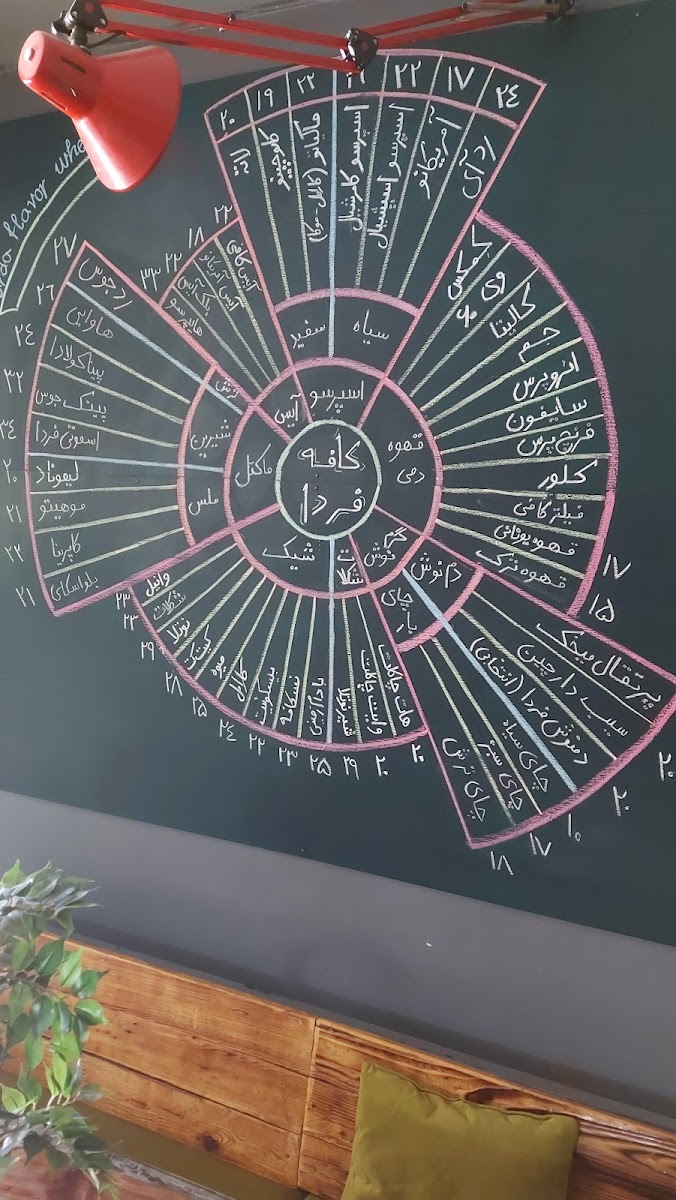 کافه
فردا
اسپرسو
سیاه
سفیر
رد آی ۲۴
آمریکانو ۱۷
اسپرسو اسپیشیال ۲۲
اسپرسو کامرشیال
ماکیاتو (کارامل-موکا) ۲۲
کاپوچینو ۱۹
لاته ۲۰
قهوه
دمی
کمکس
وی ۶۰
کالیتا
جم
ائروپرس
سایفون
فرنچ پرس
کلور
فیلتر کافی
قهوه یونانی ۱۷
قهوه ترک ۱۵
گرم
نوش
دم نوش
پرتقال میخک ۲۰
سیب دارچین
دمنوش فردا (انتخابی) ۲۰
چای
بار
چای سیاه ۱۰
چای سبز ۱۷
چای ترش ۱۸
هات چاکلت ۲۰
وایت چاکلت ۲۰
شیر نوتلا ۲۹
شیک
بادام زمینی ۲۵
نسکافه ۲۳
بیسکویت ۲۲
کارامل ۲۴
میوه ۲۵
۲۸
نوتلا ۲۹
شکلات ۲۳
وانیل ۲۳
ماکتل
ترش
شیرین
ملس
رد جوس ۲۷
هاوایی ۲۶
پیناکولادا ۲۴
پینک جوس ۳۲
اسموتی فردا ۳۴
لیموناد ۲۰
موهیتو ۲۱
کاپرینا ۲۲
بلو اسکای ۲۱
آیس
آیس کافی ۲۳
آیس آمریکانو ۱۸
بلک آیس ۲۲
۳۳
flavor whe